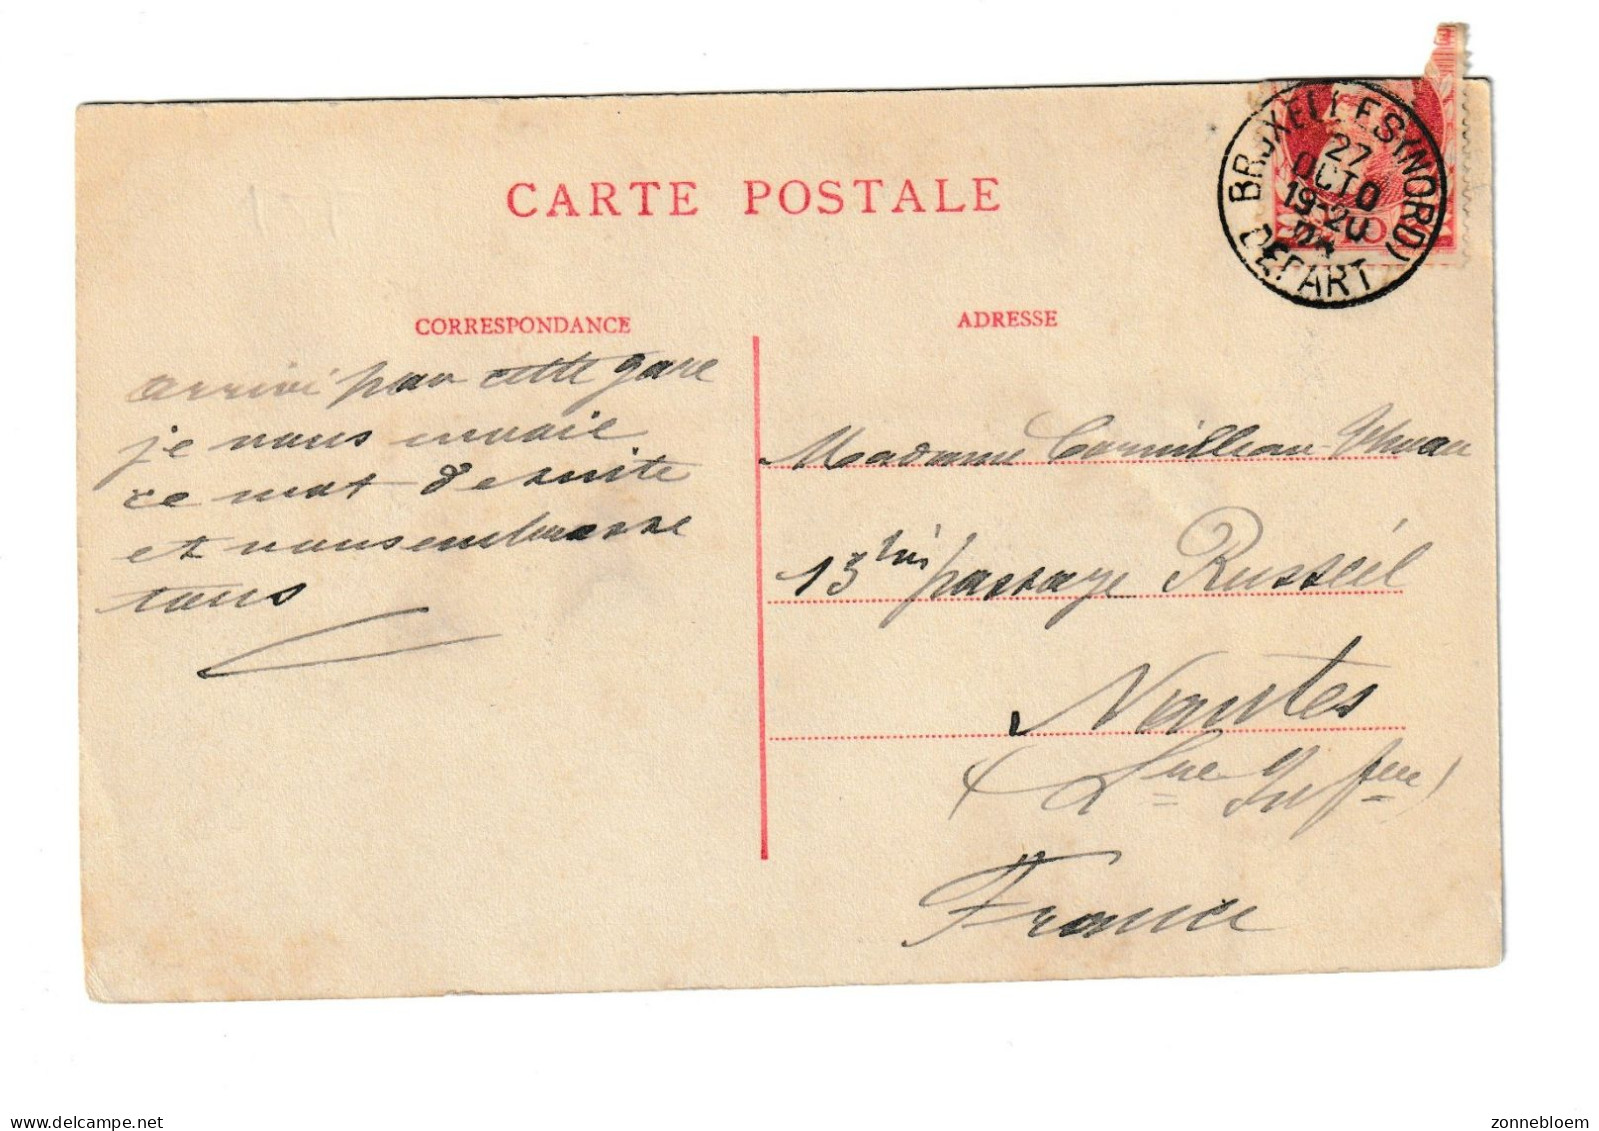 CARTE POSTALE
BRUXELLES (NORD)
27
OCTO
19-20
DEPART
10
CORRESPONDANCE
ADRESSE
arrivé par cette gare
je vous envoie
ce mot de suite
et vous embrasse
tous
Madame Cornilleau
13 bis passage Russeil
Nantes
(Lre Infre)
France
delcampe.net
zonnebloem